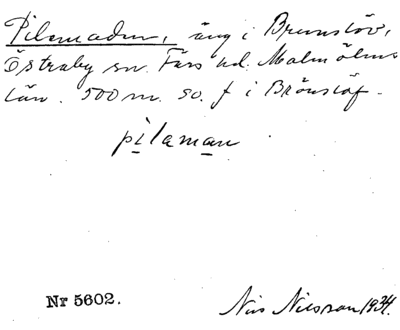 Pilemaden, äng i Brunslöv,
Östraby sn. Färs hd. Malmöhus
län. 500 m. so. f i Brönslöf.
pilaman
Nr 5602.
Nils Nilsson 1934.